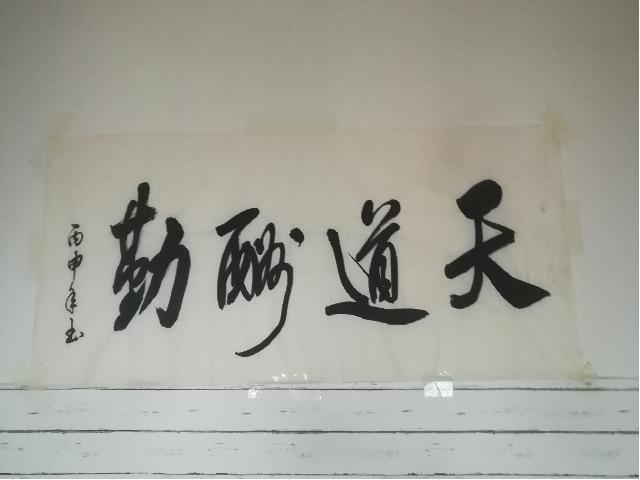 天道酬勤
丙申年玉